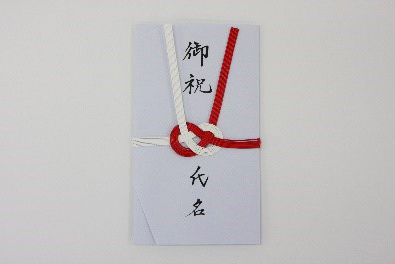 御祝
氏名